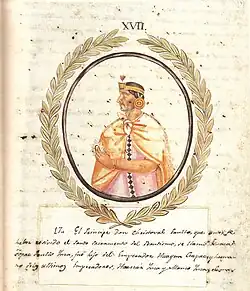 XVII.
17. El Principe don Christoval Paullu, que antes de
haber recibido el Santo Sacramento del Bautismo, se llamó
Paullu Inca, fué hijo del Emperador Huayna Capac, y hermano
de los ultimos Emperadores, Huascar Inca y Manco Inca